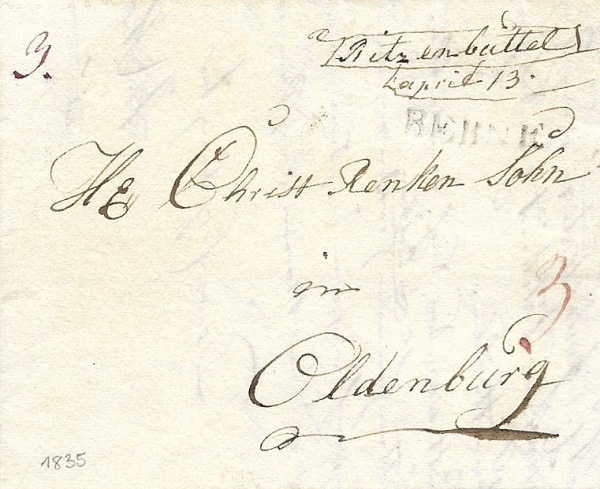 3.
Ritzenbüttel
april 13.
BEHNE
He Christ Renken Sohn
in
3
Oldenburg
1835